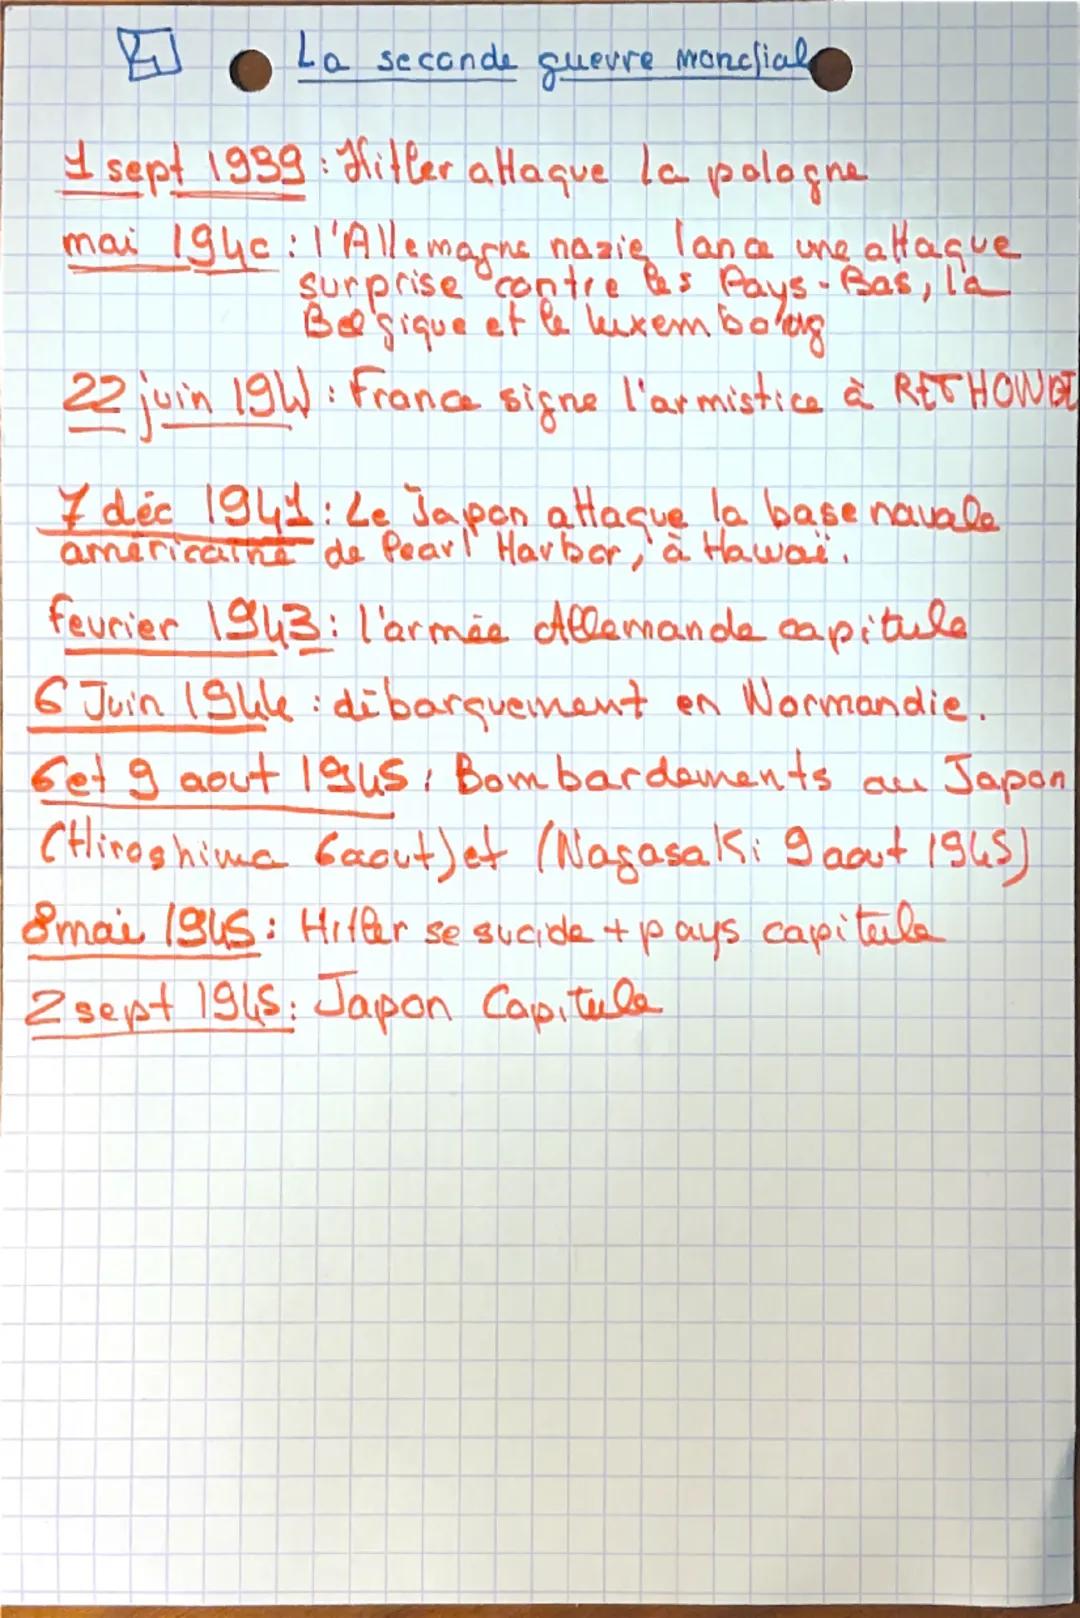 4
La seconde guerre mondial
1 sept 1939 : Hitler attaque la pologne
mai 1940 : l'Allemagne nazie lance une attaque
surprise contre les Pays-Bas, la
Belgique et le luxembourg
22 juin 1940 : France signe l'armistice à RETHONDE
7 déc 1941 : Le Japon attaque la base navale
américaine de Pearl Harbor, à Hawaï.
fevrier 1943 : l'armée Allemande capitule
6 Juin 1944 : débarquement en Normandie.
6 et 9 aout 1945 : Bombardements au Japon
(Hiroshima 6 aout) et (Nagasaki 9 aout 1945)
8 mai 1945 : Hitler se sucide + pays capitule
2 sept 1945 : Japon Capitule